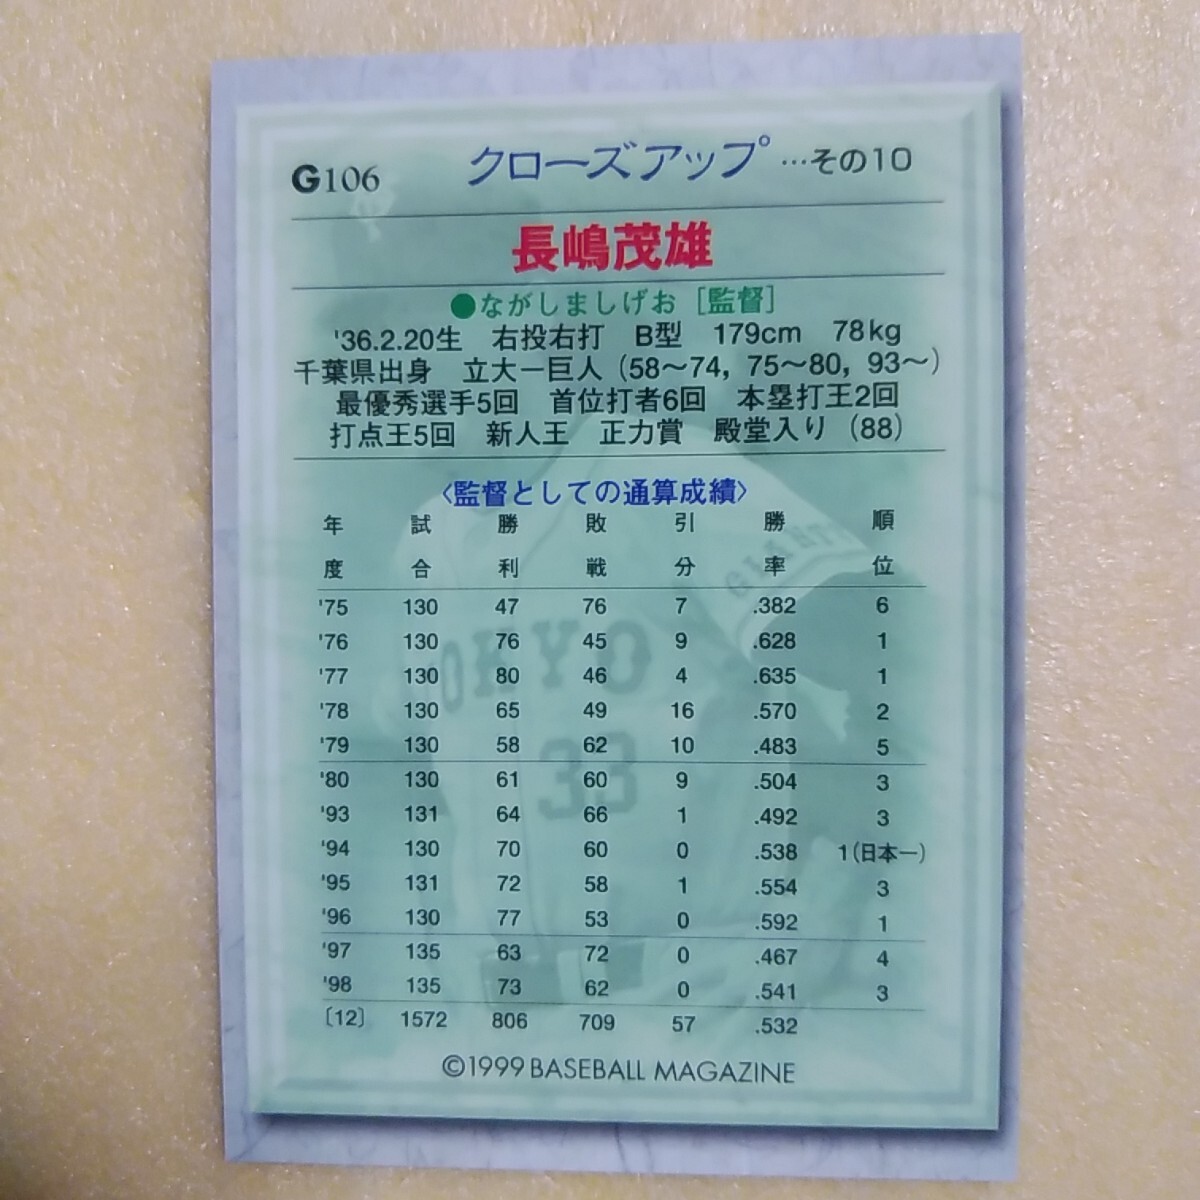 G106 クローズアップ …その10
長嶋茂雄
●ながしましげお［監督］
'36.2.20生 右投右打 B型 179cm 78kg
千葉県出身 立大ー巨人（58～74，75～80，93～）
最優秀選手5回 首位打者6回 本塁打王2回
打点王5回 新人王 正力賞 殿堂入り（88）
〈監督としての通算成績〉
年度 試合 勝利 敗戦 引分 勝率 順位
'75 130 47 76 7 .382 6
'76 130 76 45 9 .628 1
'77 130 80 46 4 .635 1
'78 130 65 49 16 .570 2
'79 130 58 62 10 .483 5
'80 130 61 60 9 .504 3
'93 131 64 66 1 .492 3
'94 130 70 60 0 .538 1（日本一）
'95 131 72 58 1 .554 3
'96 130 77 53 0 .592 1
'97 135 63 72 0 .467 4
'98 135 73 62 0 .541 3
〔12〕 1572 806 709 57 .532
©1999 BASEBALL MAGAZINE
GIANTS
OKYO
33